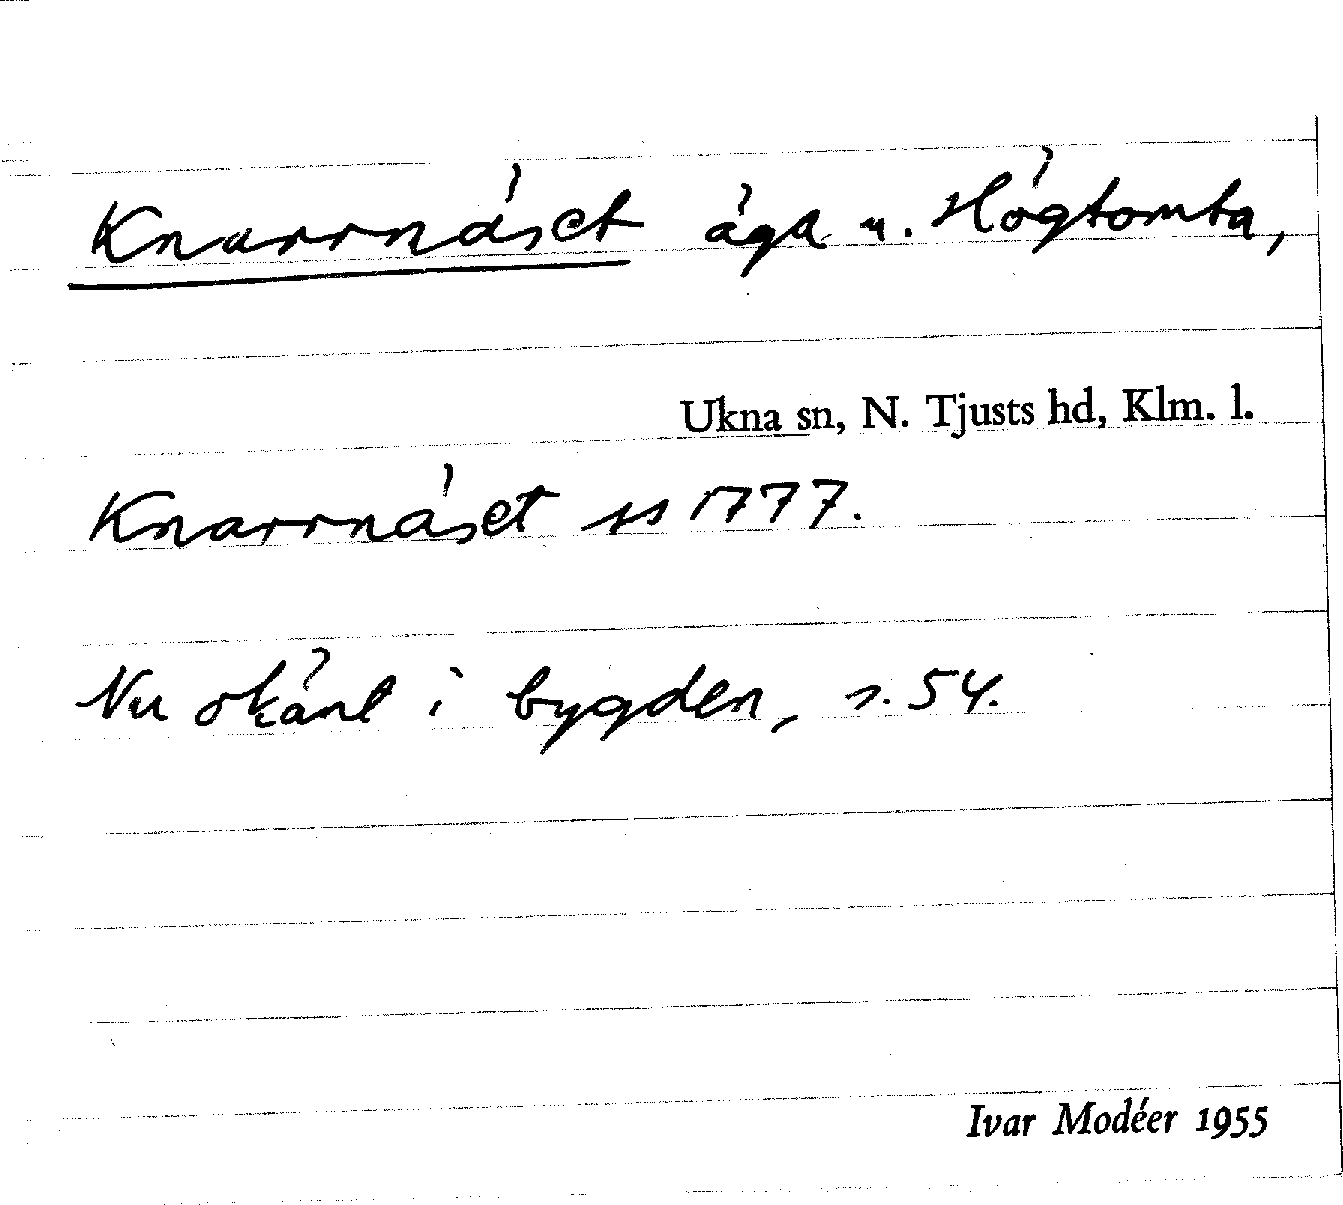 Knarrnäset äga u. Högtomta,
Ukna sn, N. Tjusts hd, Klm. l.
Knarrnäset ss 1777.
Nu okänt i bygden, s. 54.
Ivar Modéer 1955